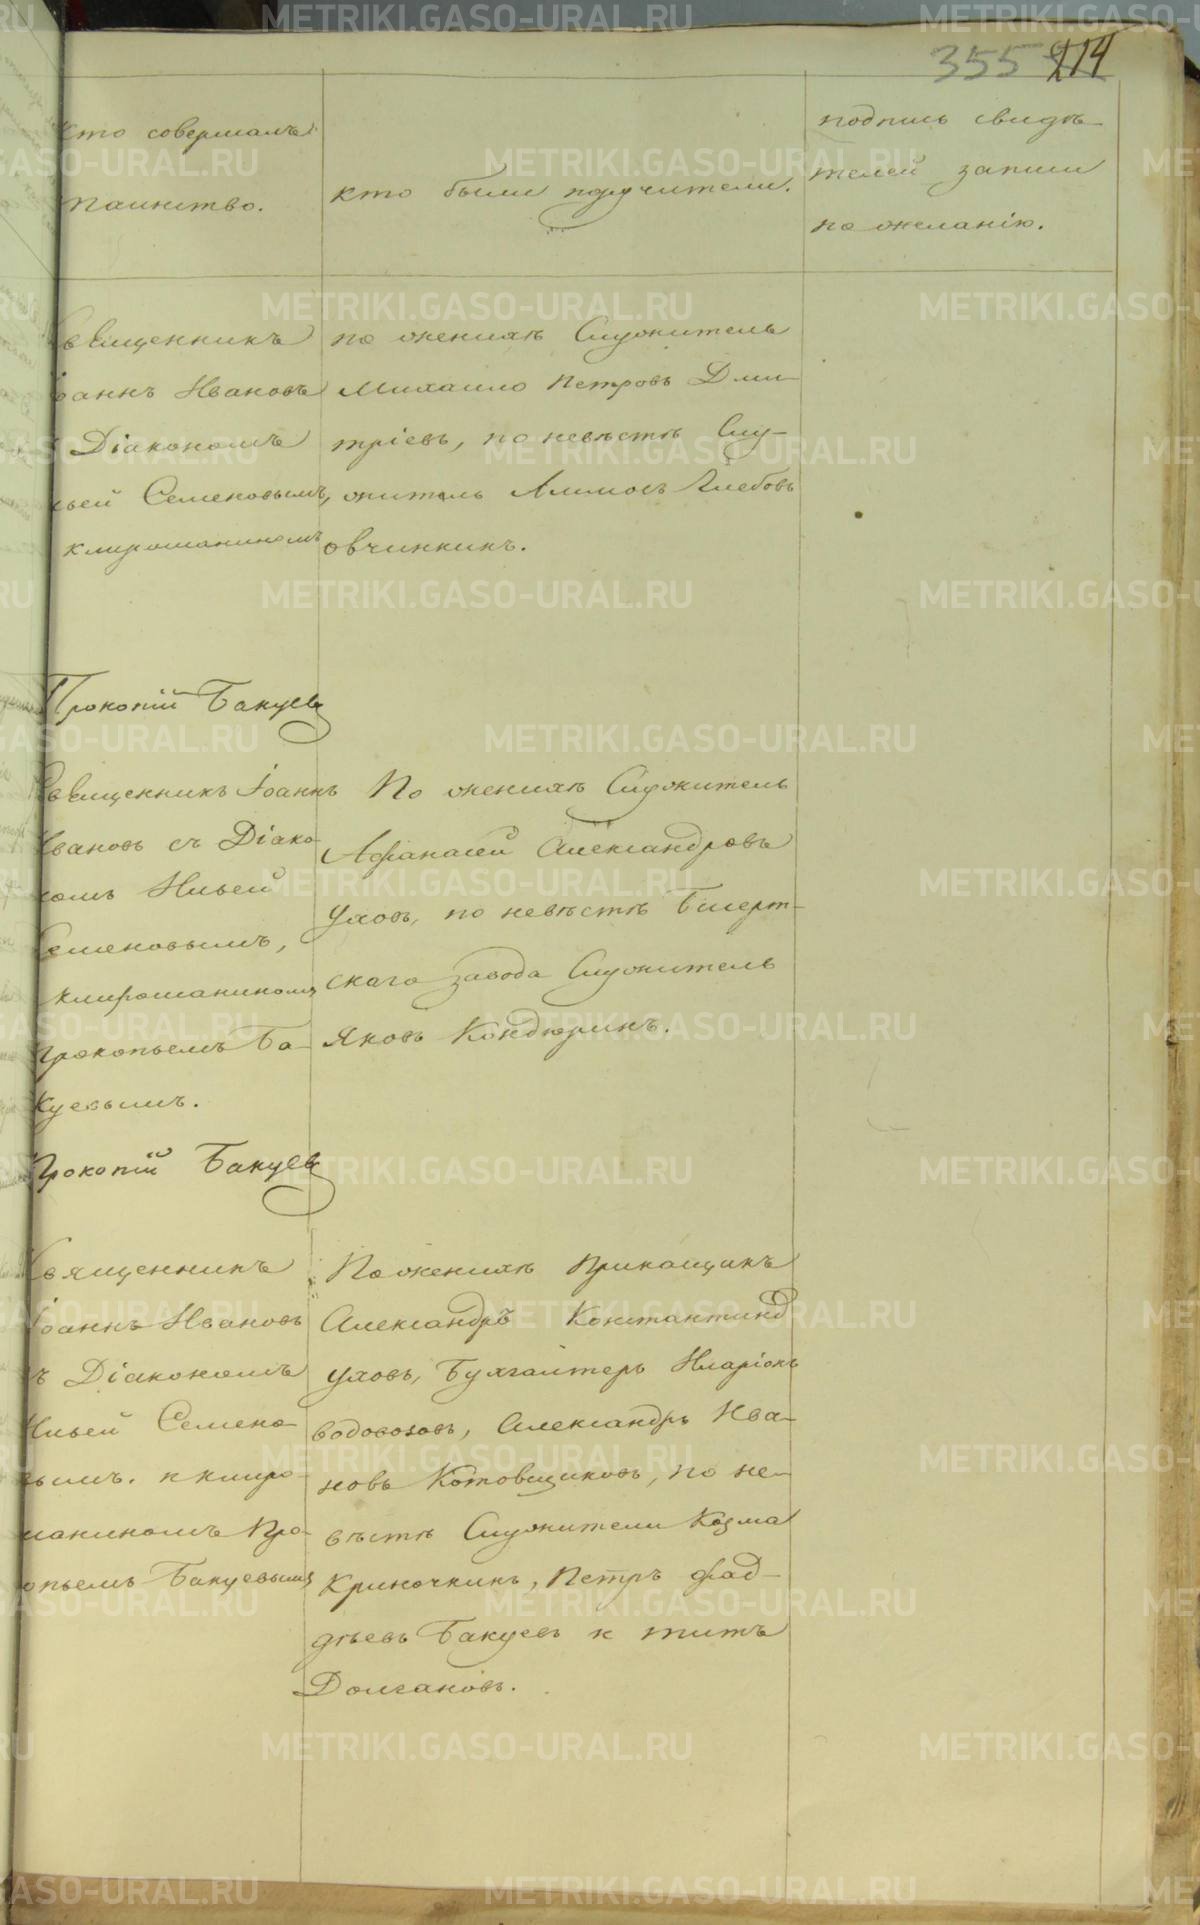 355 214
кто совершалъ
таинство.
кто были поручители.
подпись свидѣ-
телей записи
по желанію.
Священникъ
Іоаннъ Ивановъ
Діакономъ
Семеновымъ,
клирошаниномъ
по женихѣ Служитель
Михаило Петровъ Дми-
тріевъ, по невѣстѣ Слу-
житель Глебовъ
овчинникъ.
Прокопій Бакуевъ
Священникъ Іоаннъ
Ивановъ съ Діако-
номъ Ильей
Семеновымъ,
клирошаниномъ
Прокопьемъ Ба-
куевымъ.
По женихѣ Служитель
Афанасей Александровъ
Уховъ, по невѣстѣ Бисерт-
скаго завода Служитель
Яковъ Кондюринъ.
Прокопій Бакуевъ
Священникъ
Іоаннъ Ивановъ
съ Діакономъ
Ильей Семено-
вымъ. и клиро-
шаниномъ Про-
копьемъ Бакуевымъ
По женихѣ Прикащикъ
Александръ Константинъ
Уховъ, Бухгалтеръ Иларіонъ
водовозовъ, Александръ Ива-
новъ Котовщиковъ, по не-
вѣстѣ Служители Козма
Криночкинъ, Петръ фад-
дѣевъ Бакуевъ и титъ
Долгановъ.
METRIKI.GASO-URAL.RU